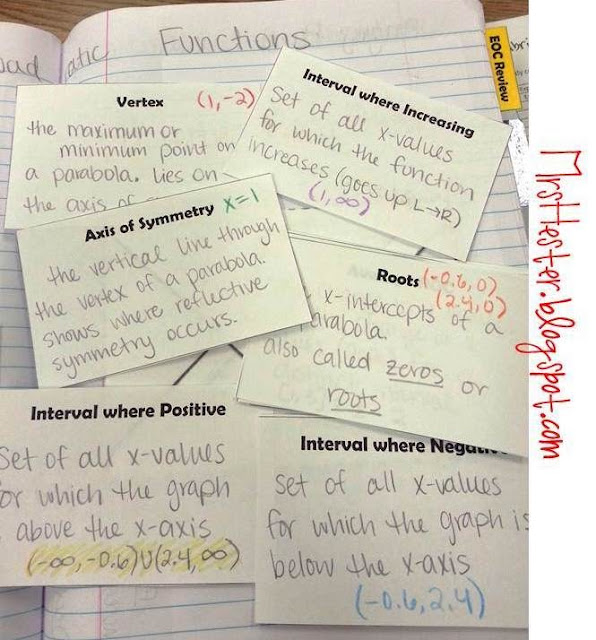 Functions
atic
EOC Review
Vertex (1,-2)
the maximum or
minimum point on
a parabola. lies on
the axis of
Interval where Increasing
Set of all x-values
for which the function
increases (goes up L→R)
(1,∞)
Axis of Symmetry x=1
the vertical line through
the vertex of a parabola.
shows where reflective
symmetry occurs.
Roots (-0.6,0)
(2.4,0)
x-intercepts of a
arabola.
also called zeros or
roots
Interval where Positive
Set of all x-values
or which the graph
above the x-axis
(-∞,-0.6)U(2.4,∞)
Interval where Negativ
set of all x-values
for which the graph is
below the x-axis
(-0.6,2.4)
MrsHester.blogspot.com